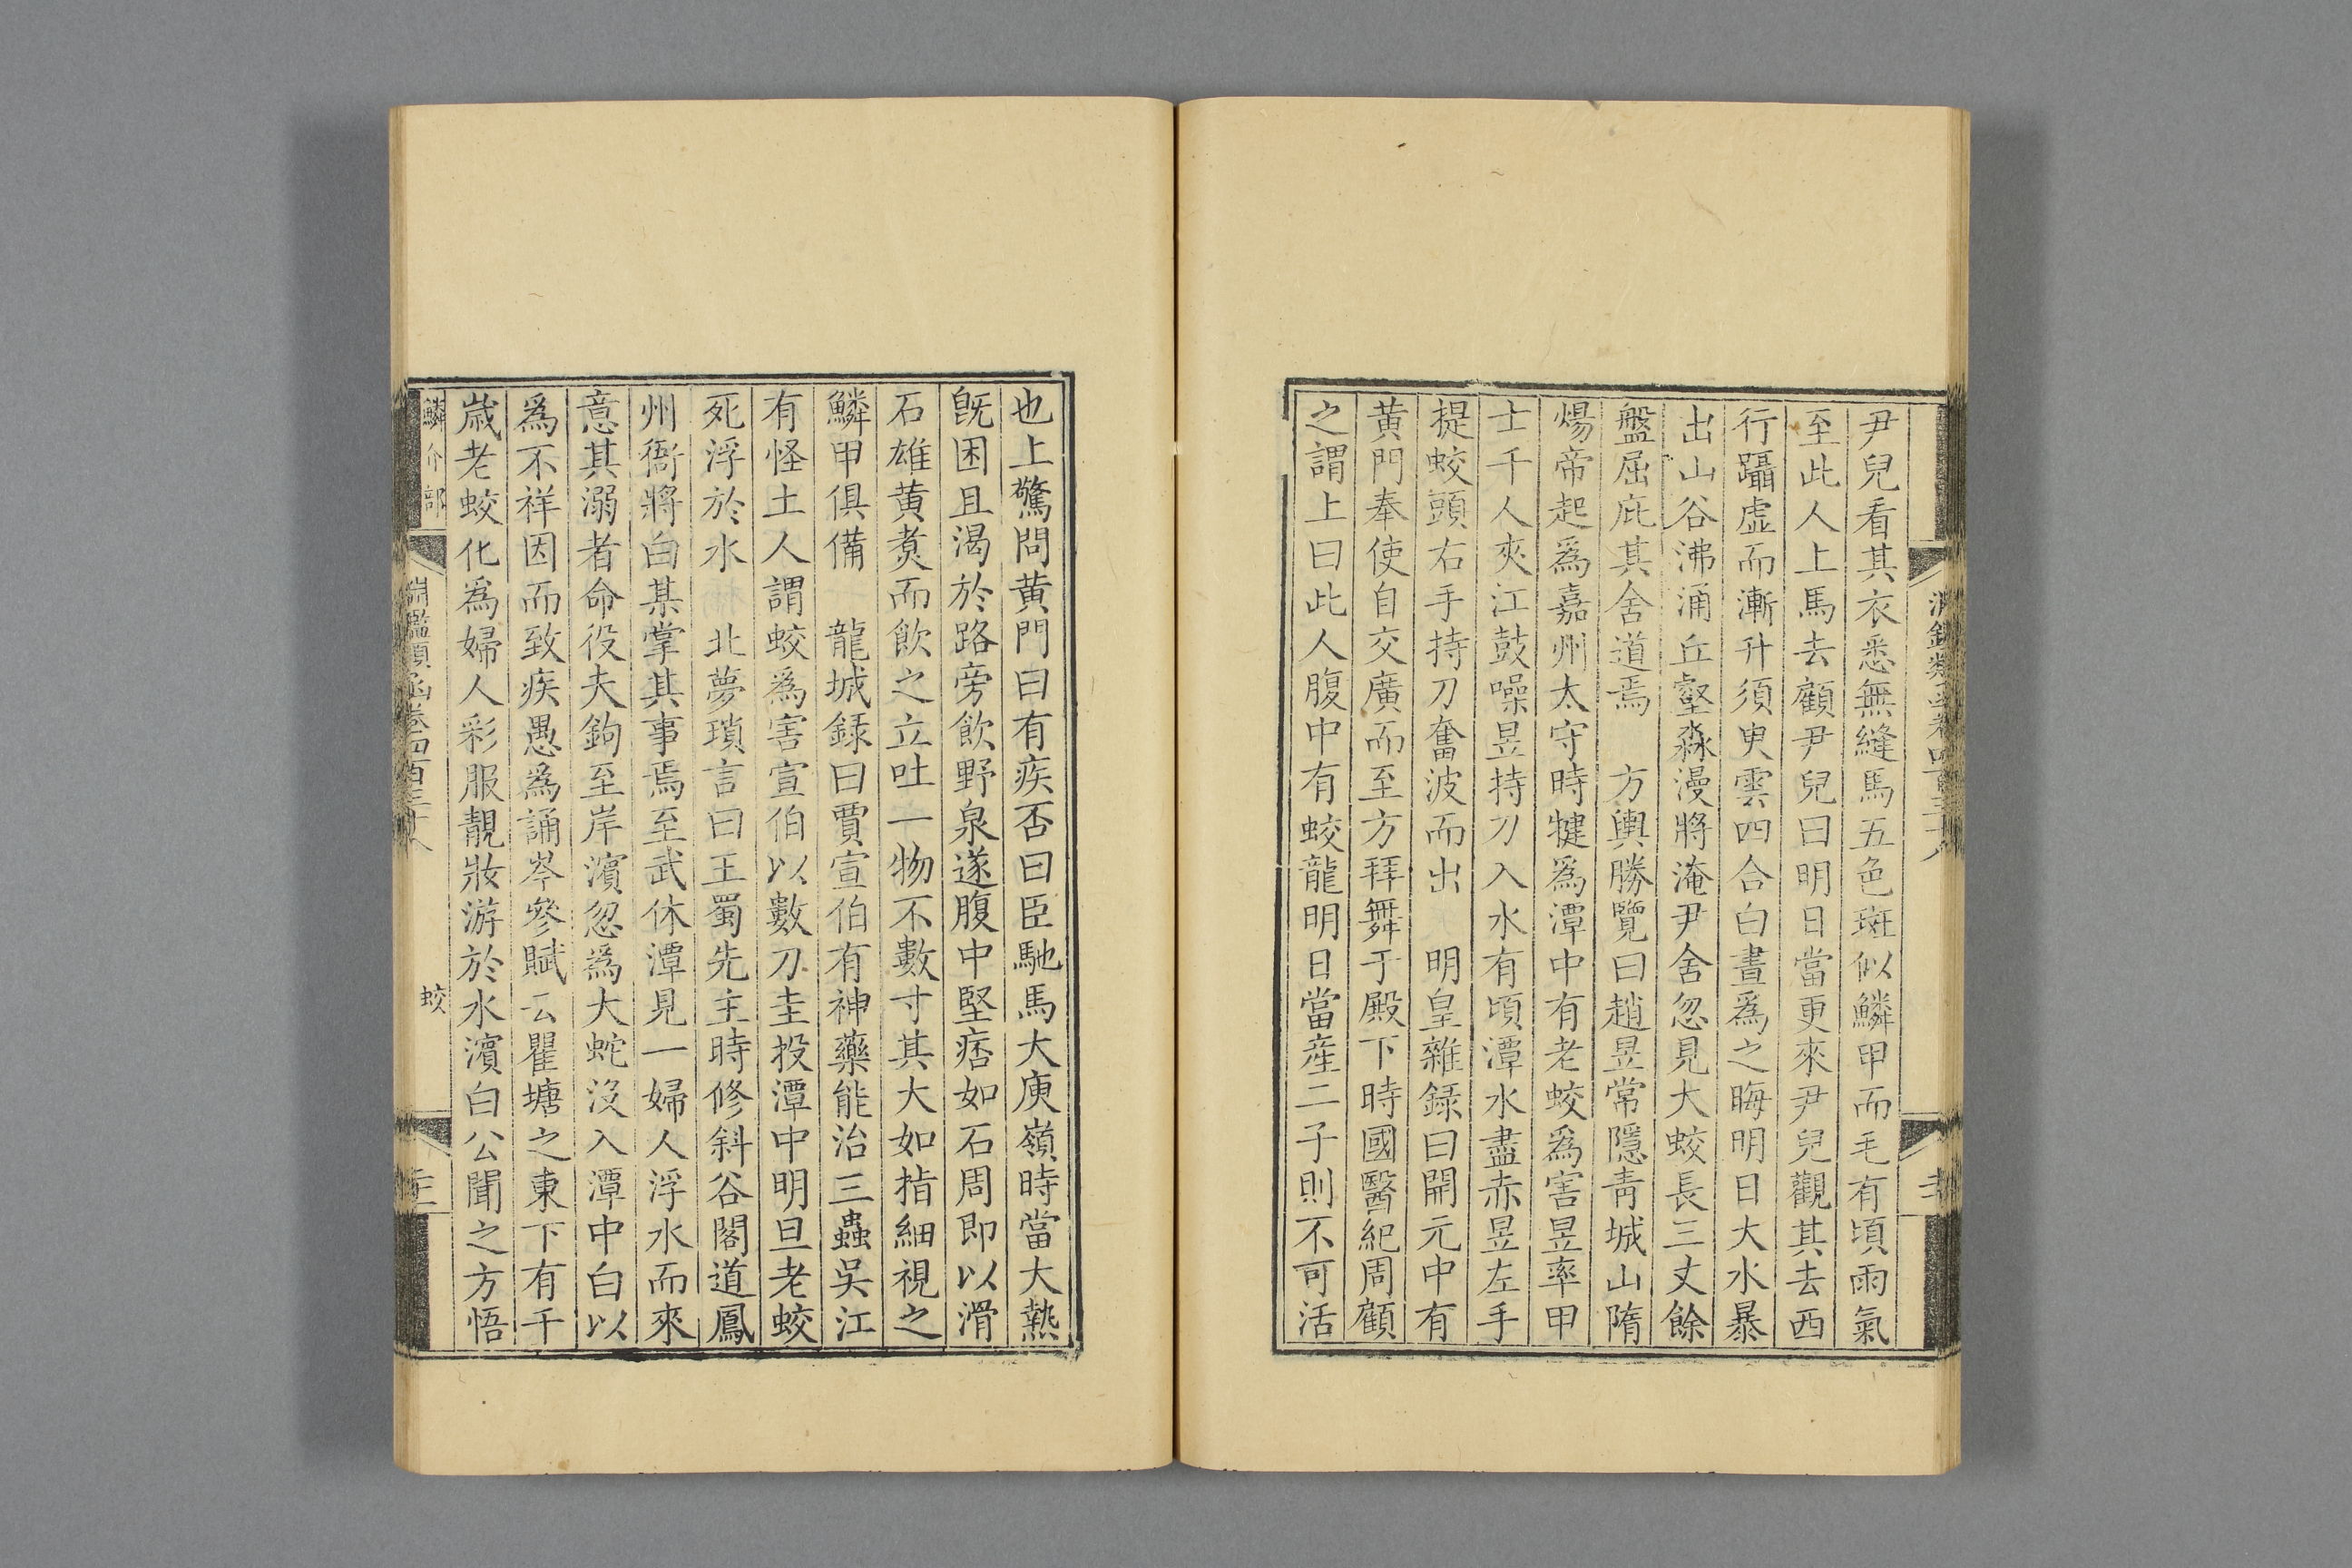 尹兒看其衣悉無縫馬五色斑似鱗甲而毛有頃雨氣
至此人上馬去顧尹兒曰明日當更來尹兒觀其去西
行躡虛而漸升須臾雲四合白晝為之晦明日大水暴
出山谷沸涌丘壑淼漫將淹尹舍忽見大蛟長三丈餘
盤屈庇其舍道焉　方輿勝覽曰趙昱常隱青城山隋
煬帝起為嘉州太守時犍為潭中有老蛟為害昱率甲
士千人夾江鼓噪昱持刀入水有頃潭水盡赤昱左手
提蛟頭右手持刀奮波而出　明皇雜錄曰開元中有
黃門奉使自交廣而至方拜舞于殿下時國醫紀周顧
之謂上曰此人腹中有蛟龍明日當產二子則不可活
也上驚問黃門曰有疾否曰臣馳馬大庾嶺時當大熱
旣困且渴於路旁飲野泉遂腹中堅痞如石周即以滑
石雄黃煑而飲之立吐一物不數寸其大如指細視之
鱗甲俱備　龍城録曰賈宣伯有神藥能治三蟲吳江
有怪土人謂蛟為害宣伯以數刀圭投潭中明旦老蛟
死浮於水　北夢瑣言曰王蜀先主時修斜谷閣道鳳
州衙將白某掌其事焉至武休潭見一婦人浮水而來
意其溺者命役夫鉤至岸濱忽為大蛇沒入潭中白以
為不祥因而致疾愚為誦岑參賦云瞿塘之東下有千
歲老蛟化為婦人彩服靚妝游於水濱白公聞之方悟
鱗介部
淵鑑類函卷四百三十八
蛟